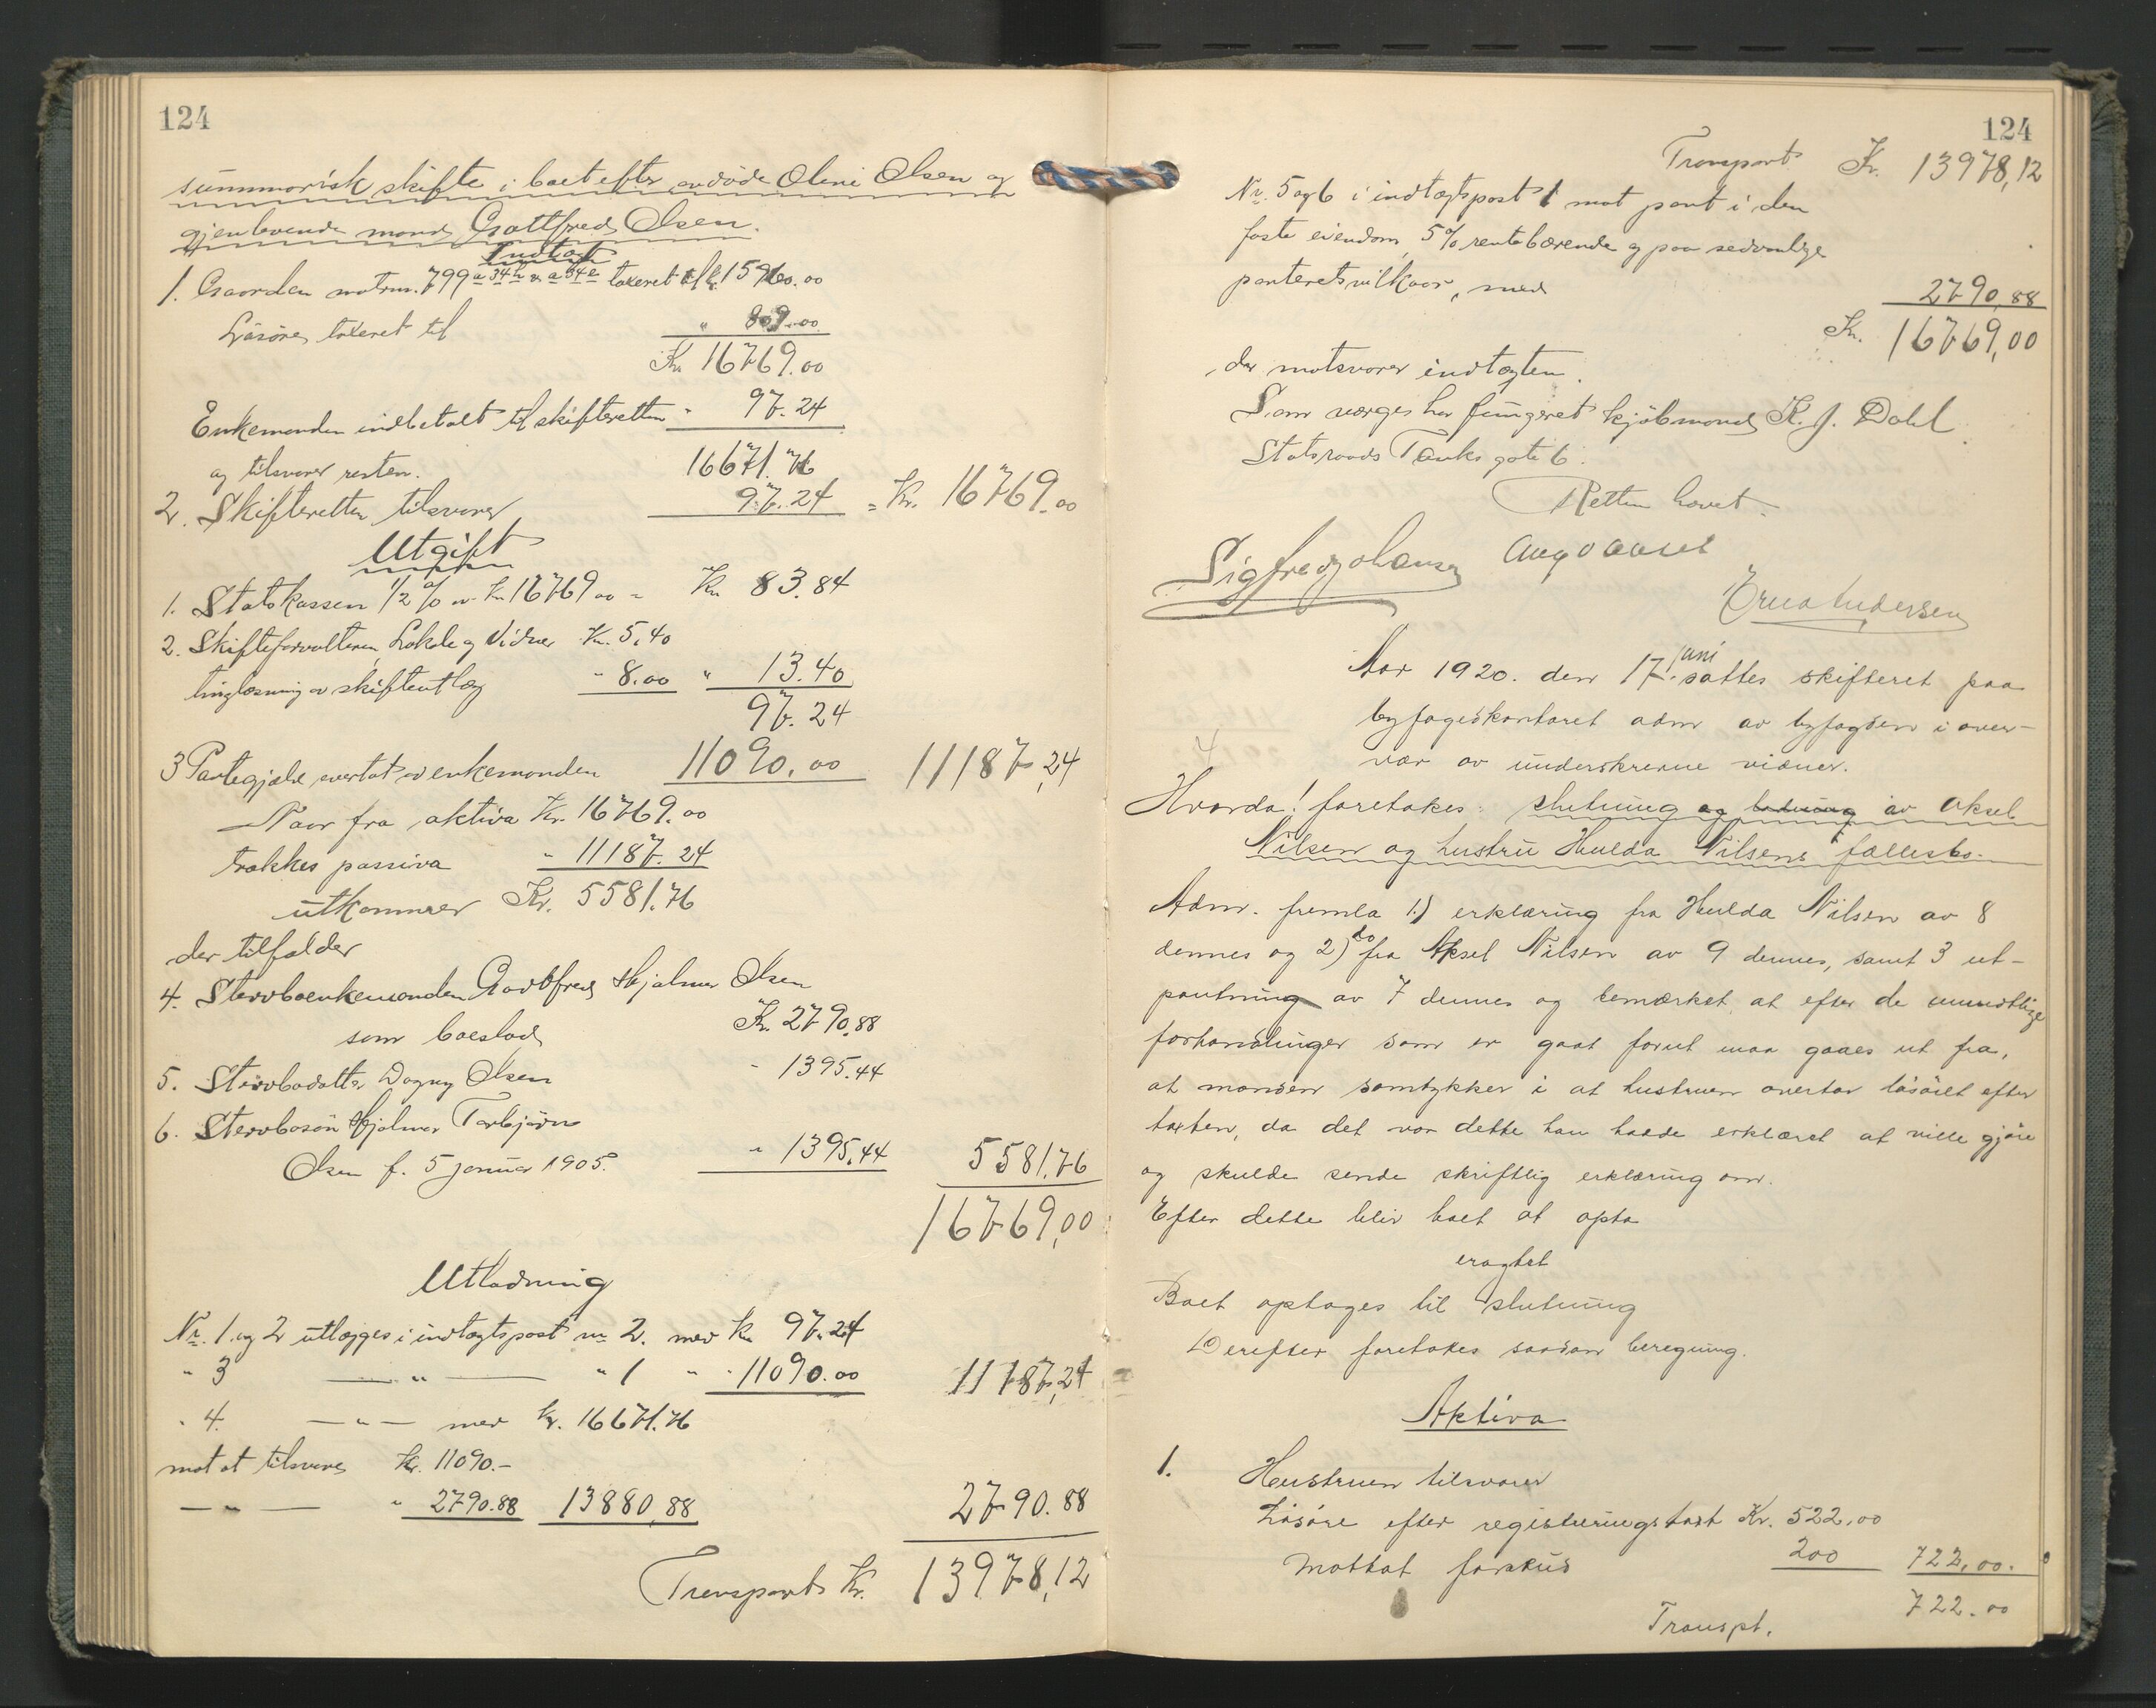 124
summarisk skifte i boet efter avdöde Oleni Olsen og
gjenlevende mand Gottfred Olsen.
Indtægt
1. Gaarden matrnr. 799 a 34 h & a 34 e taxeret til kr. 15960.00
Lösöre, taxeret til " 809.00
Kr. 16769.00
Enkemanden indbetalt til skifteretten " 97.24
og tilsvarer resten. 16671.76
2. Skifteretten tilsvarer 97.24 = Kr. 16769.00
Utgift
1. Statskassen 1/2 % av kr 16769.00 = Kr. 83.84
2. Skifteforvalteren, Lokale og Vidner Kr. 5.40
tinglæsning av skifteutlæg " 8.00 " 13.40
97.24
3 Pantegjæld overtat av enkemanden 11090.00 11187,24
Naar fra aktiva Kr. 16769.00
trækkes passiva " 11187.24
utkommer Kr. 5581.76
der tilfalder
4. Stervboenkemanden Gottfred Hjalmar Olsen
som boeslod Kr. 2790.88
5. Stervbodatter Dagny Olsen " 1395.44
6. Stervbosön Hjalmar Torbjörn
Olsen f. 5 januar 1905. " 1395.44 5581.76
16769,00
Utlodning
Nr. 1 og 2 utlægges i indtægtspost nr. 2. med kr 97.24
" 3 — " — " 1 " " 11090.00 11187,24
" 4. — " — med kr. 16671.76
mot at tilsvare kr. 11090.-
— " — " 2790.88 13880,88 2790.88
Transport Kr. 13978,12
124
Transport Kr. 13978,12
Nr. 5 og 6 i indtægtspost 1 mot pant i den
faste eiendom, 5% rentebærende og paa sedvanlige
panteretsvilkaar, med 2790,88
Kr. 16769,00
der motsvarer indtægten.
Som værge har fungeret kjöbmand K. J. Dahl
Statsraad Tanks gate 6.
Retten hævet.
Sigfred Johansen
Erna Andersen
Aar 1920. den 17. juni sattes skifteret paa
byfogedkontoret adm av byfogden i over-
vær av underskrevne vidner.
Hvorda! foretakes: slutning og lodning av Aksel
Nilsen og hustru Hulda Nilsens fællesbo.
Adm. fremla 1.) erklæring fra Hulda Nilsen av 8
dennes og 2) do fra Aksel Nilsen av 9 dennes, samt 3 ut-
pantning av 7 dennes og bemærket at efter de mundtlige
forhandlinger som er gaat forut maa gaaes ut fra,
at manden samtykker i at hustruen overtar lösöret efter
taxten, da det var dette han hadde erklæret at ville gjöre
og skulde sende skriftlig erklæring om.
Efter dette blir boet at opta
eragtet
Boet optages til slutning
Derefter foretakes saadan beregning.
Aktiva
1. Hustruen tilsvarer
Lösöre efter registreringstaxt Kr. 522.00
Mottat forskud 200 722,00.
Transpt. 722.00